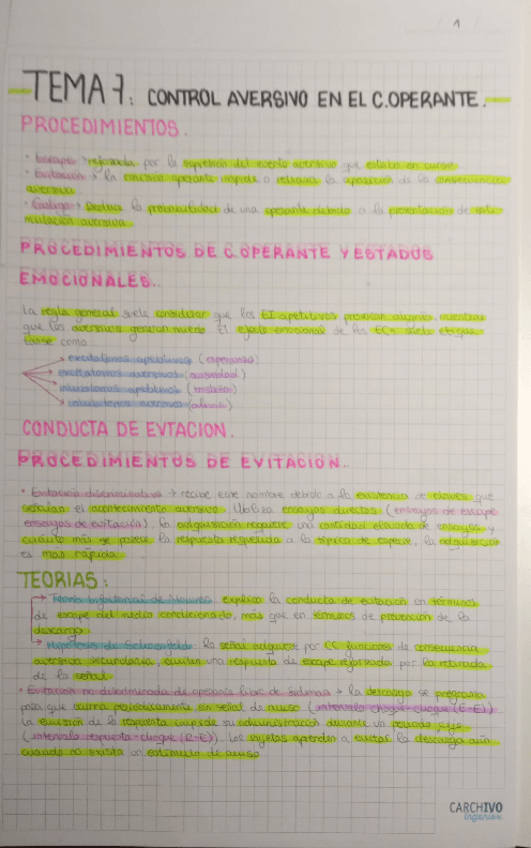 1
TEMA 7: CONTROL AVERSIVO EN EL C.OPERANTE.
PROCEDIMIENTOS.
• Escape → reforzada por la supresión del evento aversivo que estaba en curso
• Evitación → la emisión operante impide o retrasa la aparición de la consecuencia
aversiva
• Castigo → Reduce la probabilidad de una operante debido a la presentación de esti-
mulación aversiva
PROCEDIMIENTOS DE C.OPERANTE Y ESTADOS
EMOCIONALES.
La regla general suele considerar que los EI apetitivos provocan alegría, mientras
que los aversivos generan miedo. El efecto emocional de los ECs suele etique-
tarse como
excitatorios apetitivos (esperanza)
excitatorios aversivos (ansiedad)
inhibitorios apetitivos (tristeza)
inhibitorios aversivos (alivio)
CONDUCTA DE EVTACION.
PROCEDIMIENTOS DE EVITACIÓN.
• Evitación discriminativa → recibe este nombre debido a la existencia de claves que
señalan el acontecimiento aversivo. Utiliza ensayos directos (ensayos de escape
ensayos de evitación), la adquisición requiere una cantidad elevada de ensayos y
cuanto más se parece la respuesta requerida a la típica de especie, la adquisición
es más rápida.
TEORIAS:
→ Teoría bifactorial de Mowrer: explica la conducta de evitación en términos
de escape del miedo condicionado, más que en términos de prevención de la
descarga.
→ Hipótesis de Schoenfeld: la señal adquiere por CC funciones de consecuencia
aversiva secundaria, evitan una respuesta de escape reforzada por la retirada
de la señal
• Evitación no discriminada de operante libre de Sidman → la descarga se programa
para que ocurra periódicamente sin señal de aviso (intervalo choque-choque (E-E))
la emisión de la respuesta su administración durante un periodo fijo
(intervalo respuesta-choque (R-E)). Los sujetos aprenden a evitar la descarga aún
cuando no exista un estímulo de aviso
CARCHIVO
Ingenium